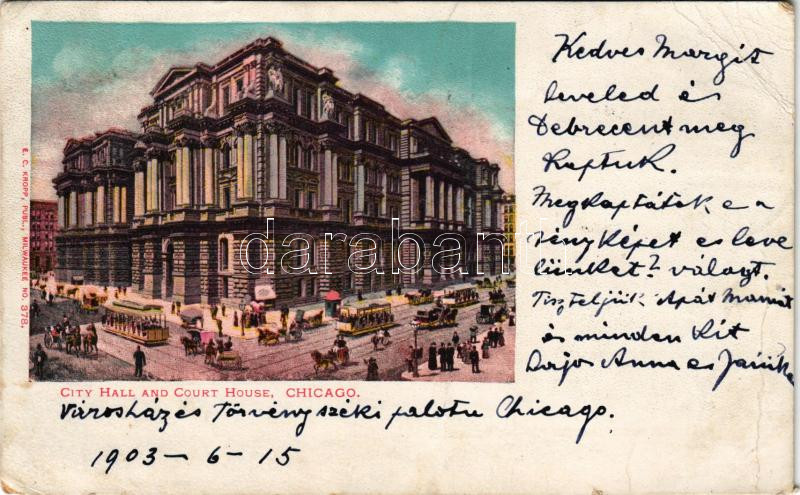 Kedves Margit
leveled és
Debrecent meg
kaptuk.
Megkaptátok e a
fényképet es leve
lünket? választ.
Tiszteljük Apát Mamát
és minden kit
Anna es Jánika
E. C. KROPP, PUBL., MILWAUKEE NO. 378.
darabanth
CITY HALL AND COURT HOUSE, CHICAGO.
Városház és Törvényszéki palota Chicago.
1903 - 6 - 15